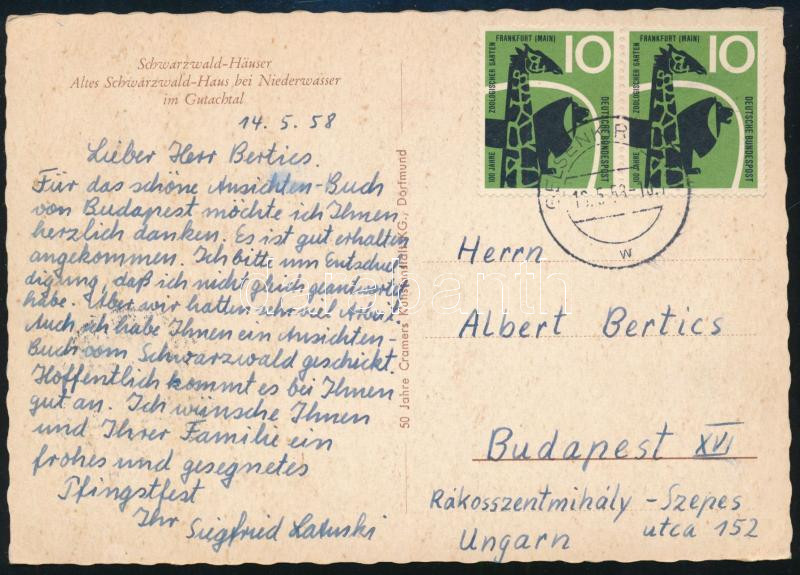 Schwarzwald-Häuser
Altes Schwarzwald-Haus bei Niederwasser
im Gutachtal
14. 5. 58
Lieber Herr Bertics.
Für das schöne Ansichten-Buch
von Budapest möchte ich Ihnen
herzlich danken. Es ist gut erhalten
angekommen. Ich bitte um Entschul
digung, daß ich nicht gleich geantwortet
habe. Aber wir hatten sehr viel Arbeit.
Auch ich habe Ihnen ein Ansichten-
Buch vom Schwarzwald geschickt.
Hoffentlich kommt es bei Ihnen
gut an. Ich wünsche Ihnen
und Ihrer Familie ein
frohes und gesegnetes
Pfingstfest
Ihr Siegfried
50 Jahre Cramers Kunstanstalt KG., Dortmund
100 JAHRE ZOOLOGISCHER GARTEN FRANKFURT (MAIN)
10
DEUTSCHE BUNDESPOST
100 JAHRE ZOOLOGISCHER GARTEN FRANKFURT (MAIN)
10
DEUTSCHE BUNDESPOST
w
Herrn
Albert Bertics
Budapest XVI
Rákosszentmihály - Szepes
utca 152
Ungarn
darabanth